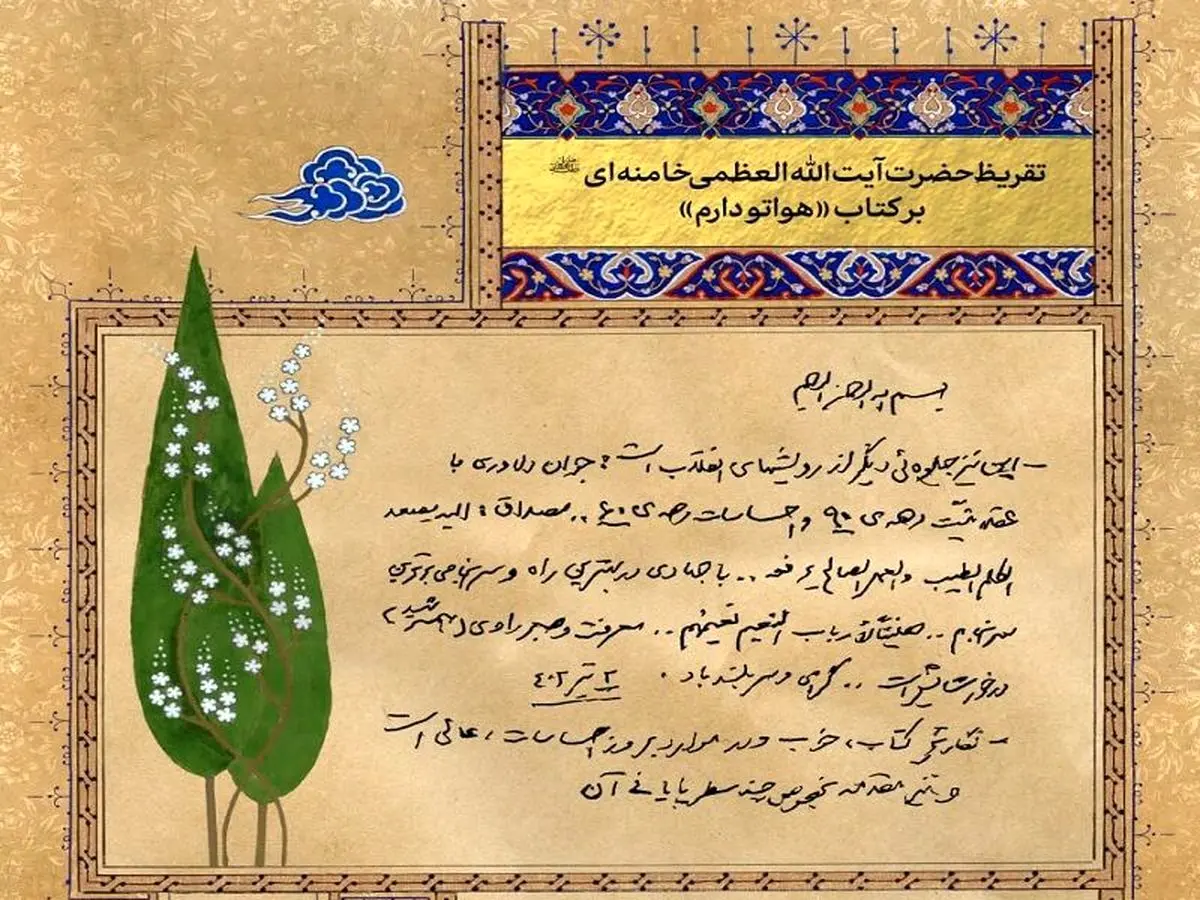 تقریظ حضرت آیت الله العظمی خامنه‌ای
بر کتاب «هواتو دارم»
بسم الله الرحمن الرحیم
- این نیز جلوه‌ئی دیگر از رویشهای انقلاب است: جوان دلاوری با
عقلانیّت دهه‌ی ۹۰ و احساسات دهه‌ی ۶۰ .. مصداق: الیه یصعد
الکلم الطیب والعمل الصالح یرفعه .. با جهادی در بهترین راه و سرانجامی برترین
سرانجام .. هنیئاً لأرباب النعیم نعیمهم .. معرفت و صبر راوی (همسر شهید)
درخور ستایش است .. گرامی و سربلند باد .
۲ تیر ۴۰۲
- نگارش کتاب، خوب و در موارد بروز احساسات، عالی است
و نیز مقدمه بخصوص چند سطر پایانی آن